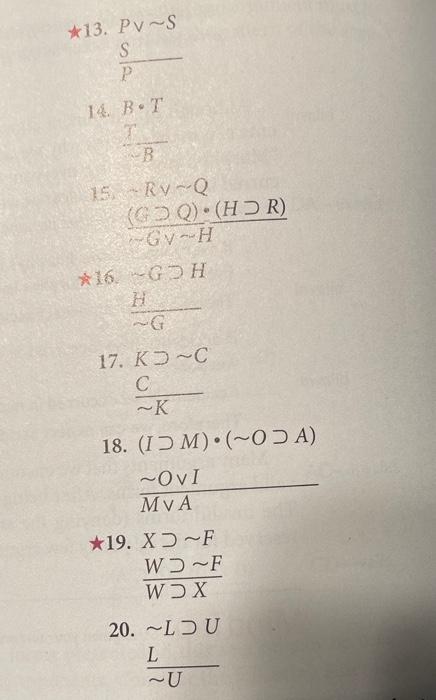 ★13. P∨~S
S
P
14. B•T
T
~B
15. ~R∨~Q
(G⊃Q)•(H⊃R)
~G∨~H
★16. ~G⊃H
H
~G
17. K⊃~C
C
~K
18. (I⊃M)•(~O⊃A)
~O∨I
M∨A
★19. X⊃~F
W⊃~F
W⊃X
20. ~L⊃U
L
~U